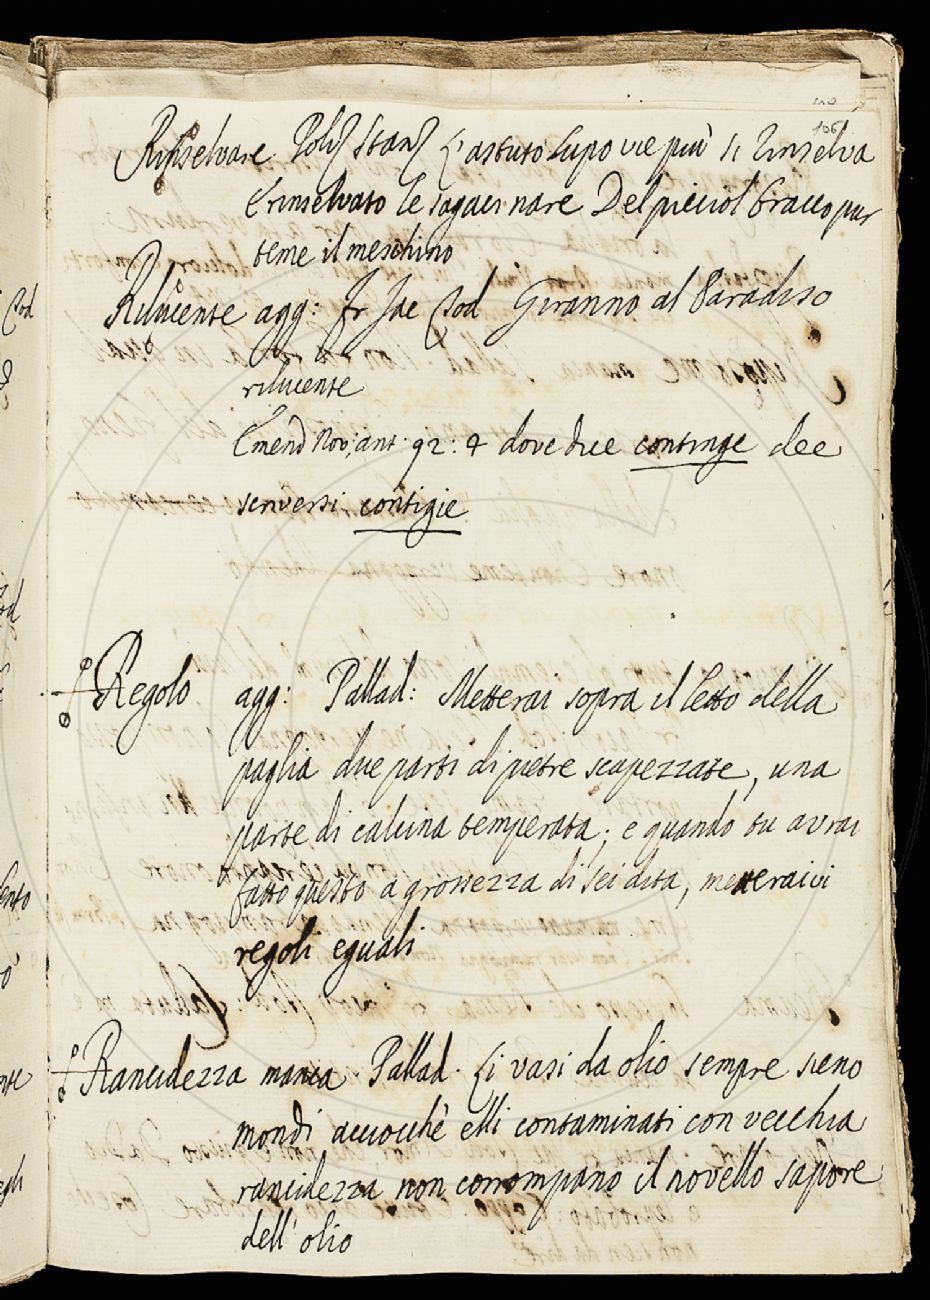 106
Rinselvare Poliz Stanz L'astuto Lupo vie più si rinselva
E rinselvato le sagaci nare Del picciol bracco par
teme il meschino
Rilucente agg: Fr Jac Tod Giranno al Paradiso
rilucente
Emend Nov: ant: 92: 4 dove dice continge dee
scriversi contigie
Regolo agg: Pallad: Metterai sopra il letto della
paglia due parti di pietre scapezzate, una
parte di calcina temperata; e quando tu avrai
fatto questo a grossezza di sei dita, metteraivi
regoli eguali
Rancidezza manca. Pallad. Li vasi da olio sempre sieno
mondi acciocchè elli contaminati con vecchia
rancidezza non corrompano il novello sapore
dell'olio